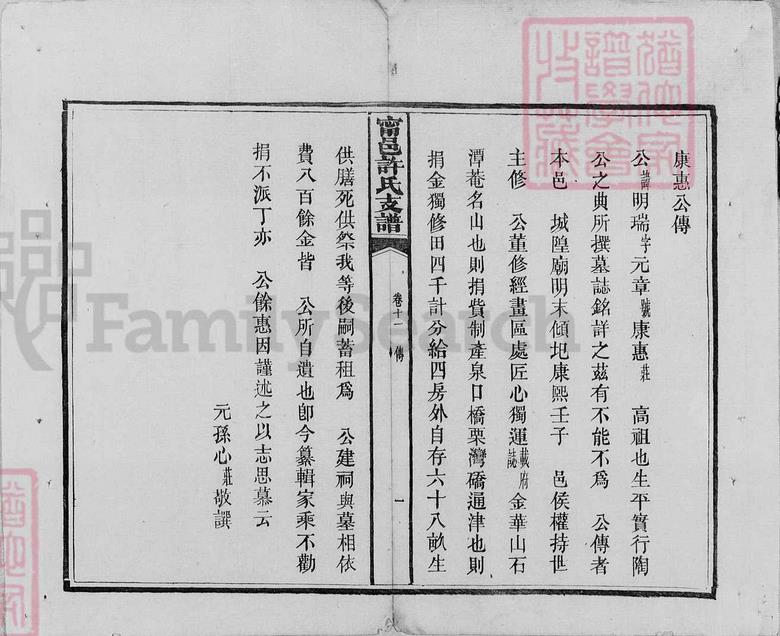 康惠公傳
公諱明瑞字元章號康惠莊 高祖也生平實行陶
公之典所撰墓誌銘詳之茲有不能不爲 公傳者
本邑 城隍廟明末傾圮康熙壬子 邑侯權持世
主修 公董修經畫區處匠心獨運載府誌金華山石
潭菴名山也則捐貲制產泉口橋栗灣礄通津也則
捐金獨修田四千計分給四房外自存六十八畝生
甯邑許氏支譜
卷十一 傳
一
供膳死供祭我等後嗣蓄租爲 公建祠與墓相依
費八百餘金皆 公所自遺也卽今纂輯家乘不勸
捐不派丁亦 公餘惠因謹述之以志思慕云
元孫心莊敬譔
FamilySearch